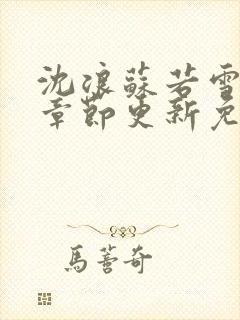 沈浪蘇若雪
章節更新免
馬薈奇